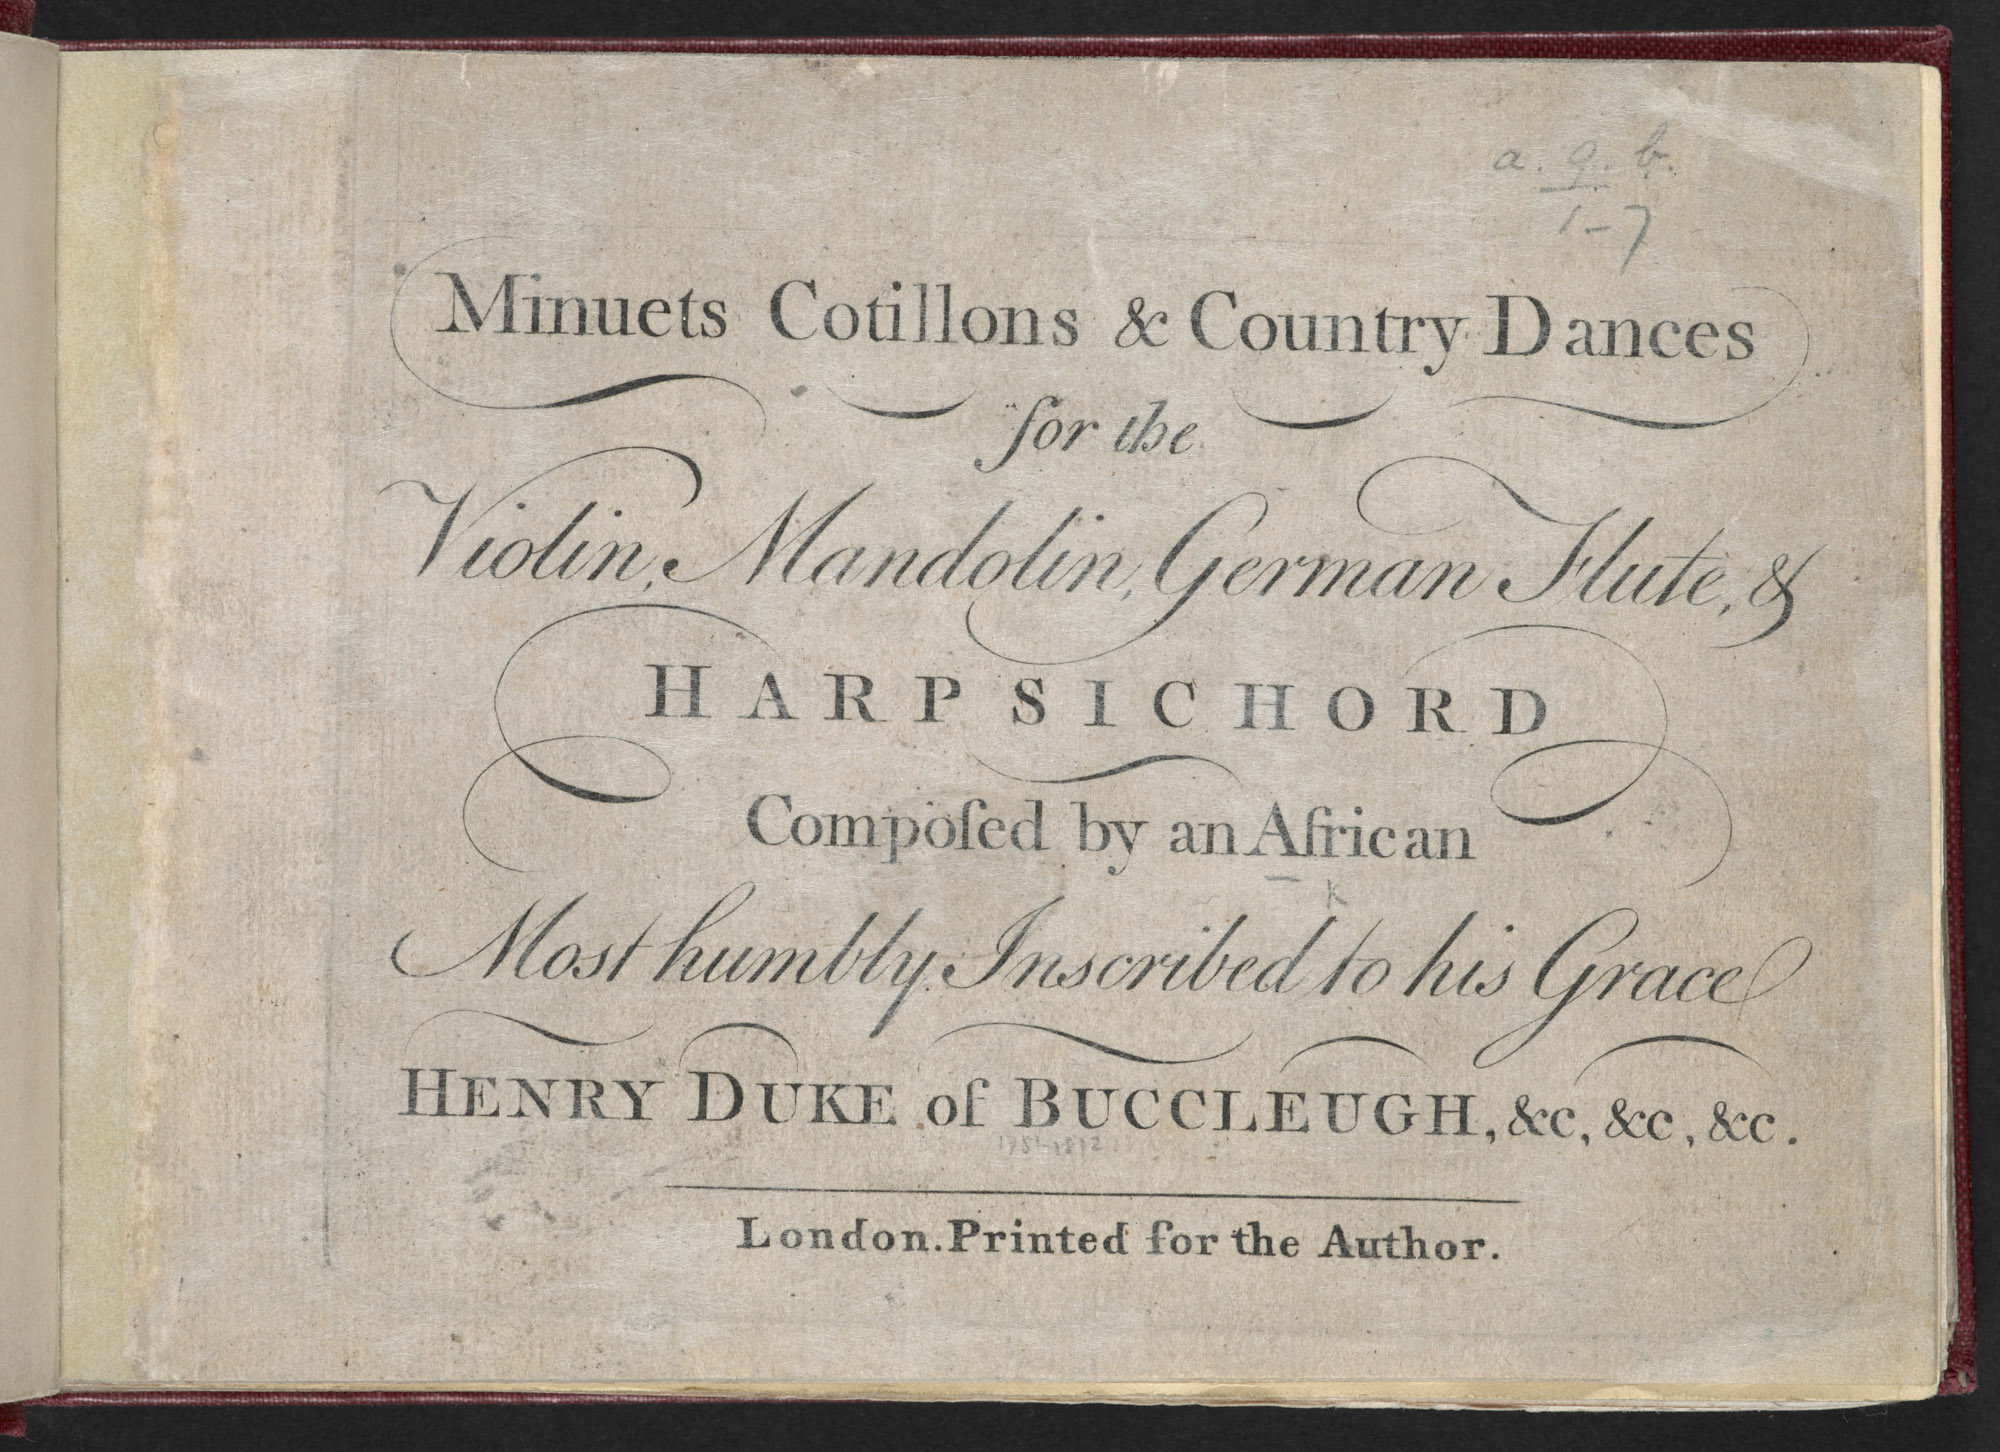 a. 9. b.
1-7
Minuets Cotillons & Country Dances
for the
Violin, Mandolin, German Flute, &
HARPSICHORD
Compoſed by an African
K
Most humbly Inscribed to his Grace
HENRY DUKE of BUCCLEUGH, &c, &c, &c.
London. Printed for the Author.